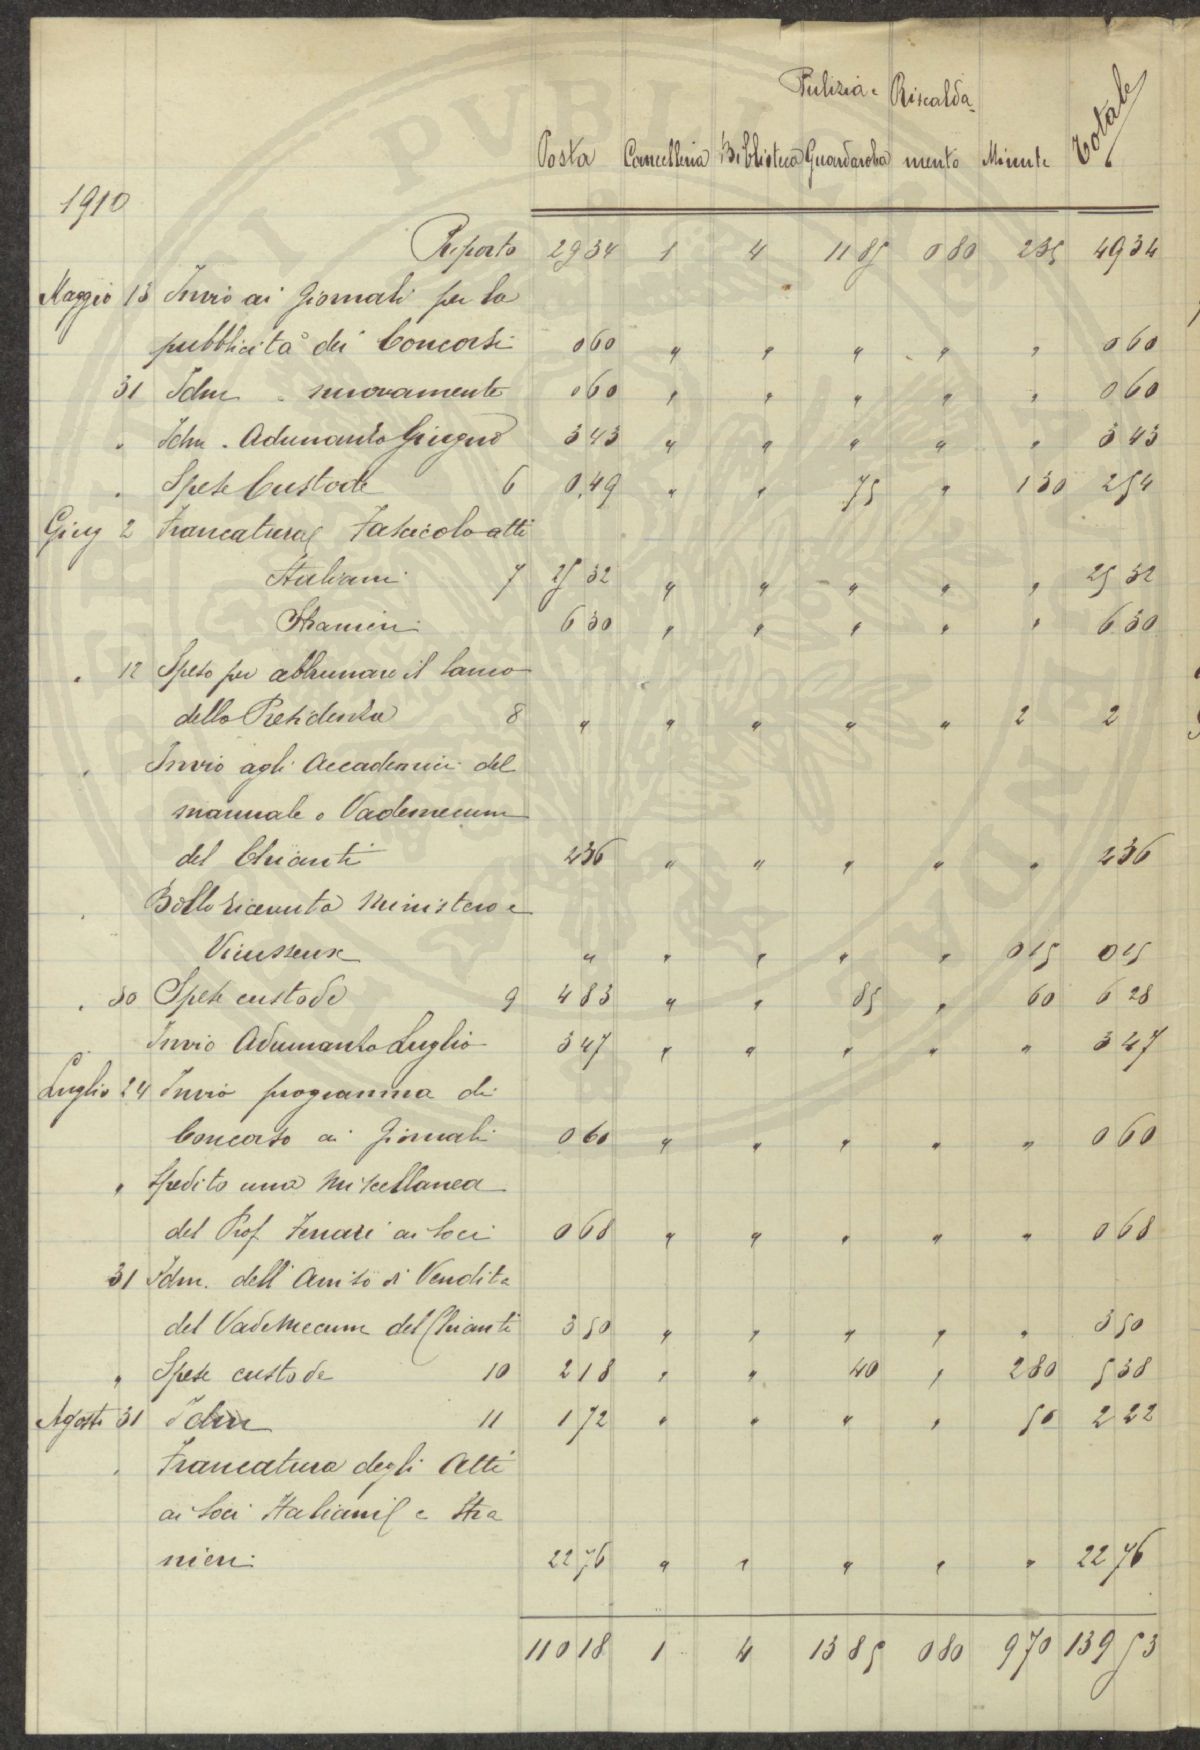 Pulizia e Riscalda
Posta Cancelleria Biblioteca Guardaroba mento Minute Totale
1910
Riporto 29 34 1 4 11 85 0 80 2 35 49 34
Maggio 13 Invio ai Giornali per la
pubblicità dei Concorsi 0 60 " " " " " 0 60
31 Idm " nuovamente 0 60 " " " " " 0 60
" Idm. Adunanza Giugno 3 43 " " " " " 3 43
" Spese Custode 6 0,49 " " 75 " 1 30 2 54
Giug 2 Francatura Fascicolo atti
Italiani 7 25 32 " " " " " 25 32
Stranieri 6 30 " " " " " 6 30
" 12 Speso per abbrunare il banco
della Presidenza 8 " " " " " 2 2
" Invio agli Accademici del
manuale o Vademecum
del Chianti 2 36 " " " " " 2 36
" Bollo ricevuta Ministero e
Vieusseux " " " " " 0 15 0 15
" 30 Spese custode 9 4 83 " " 85 " 60 6 28
" Invio Adunanza Luglio 3 47 " " " " " 3 47
Luglio 24 Invio programma di
Concorso ai Giornali 0 60 " " " " " 0 60
" Spedito una Miscellanea
del Prof. Ferrari ai Soci 0 68 " " " " " 0 68
31 Idm. dell'Avviso di Vendita
del VadeMecum del Chianti 3 50 " " " " " 3 50
" Spese custode 10 2 18 " " 40 " 2 80 5 38
Agosto 31 Idm 11 1 72 " " " " 50 2 22
" Francatura degli Atti
ai Soci Italiani e Stra
nieri 22 76 " " " " " 22 76
110 18 1 4 13 85 0 80 9 70 139 53